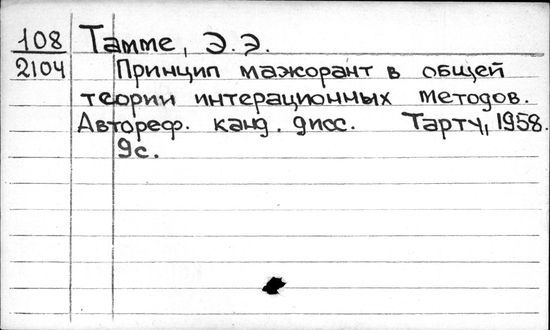 108 Тамме, Э.Э.
2104 Принцип мажорант в общей
теории интерационных методов.
Автореф. канд. дисс. Тарту, 1958.
9с.